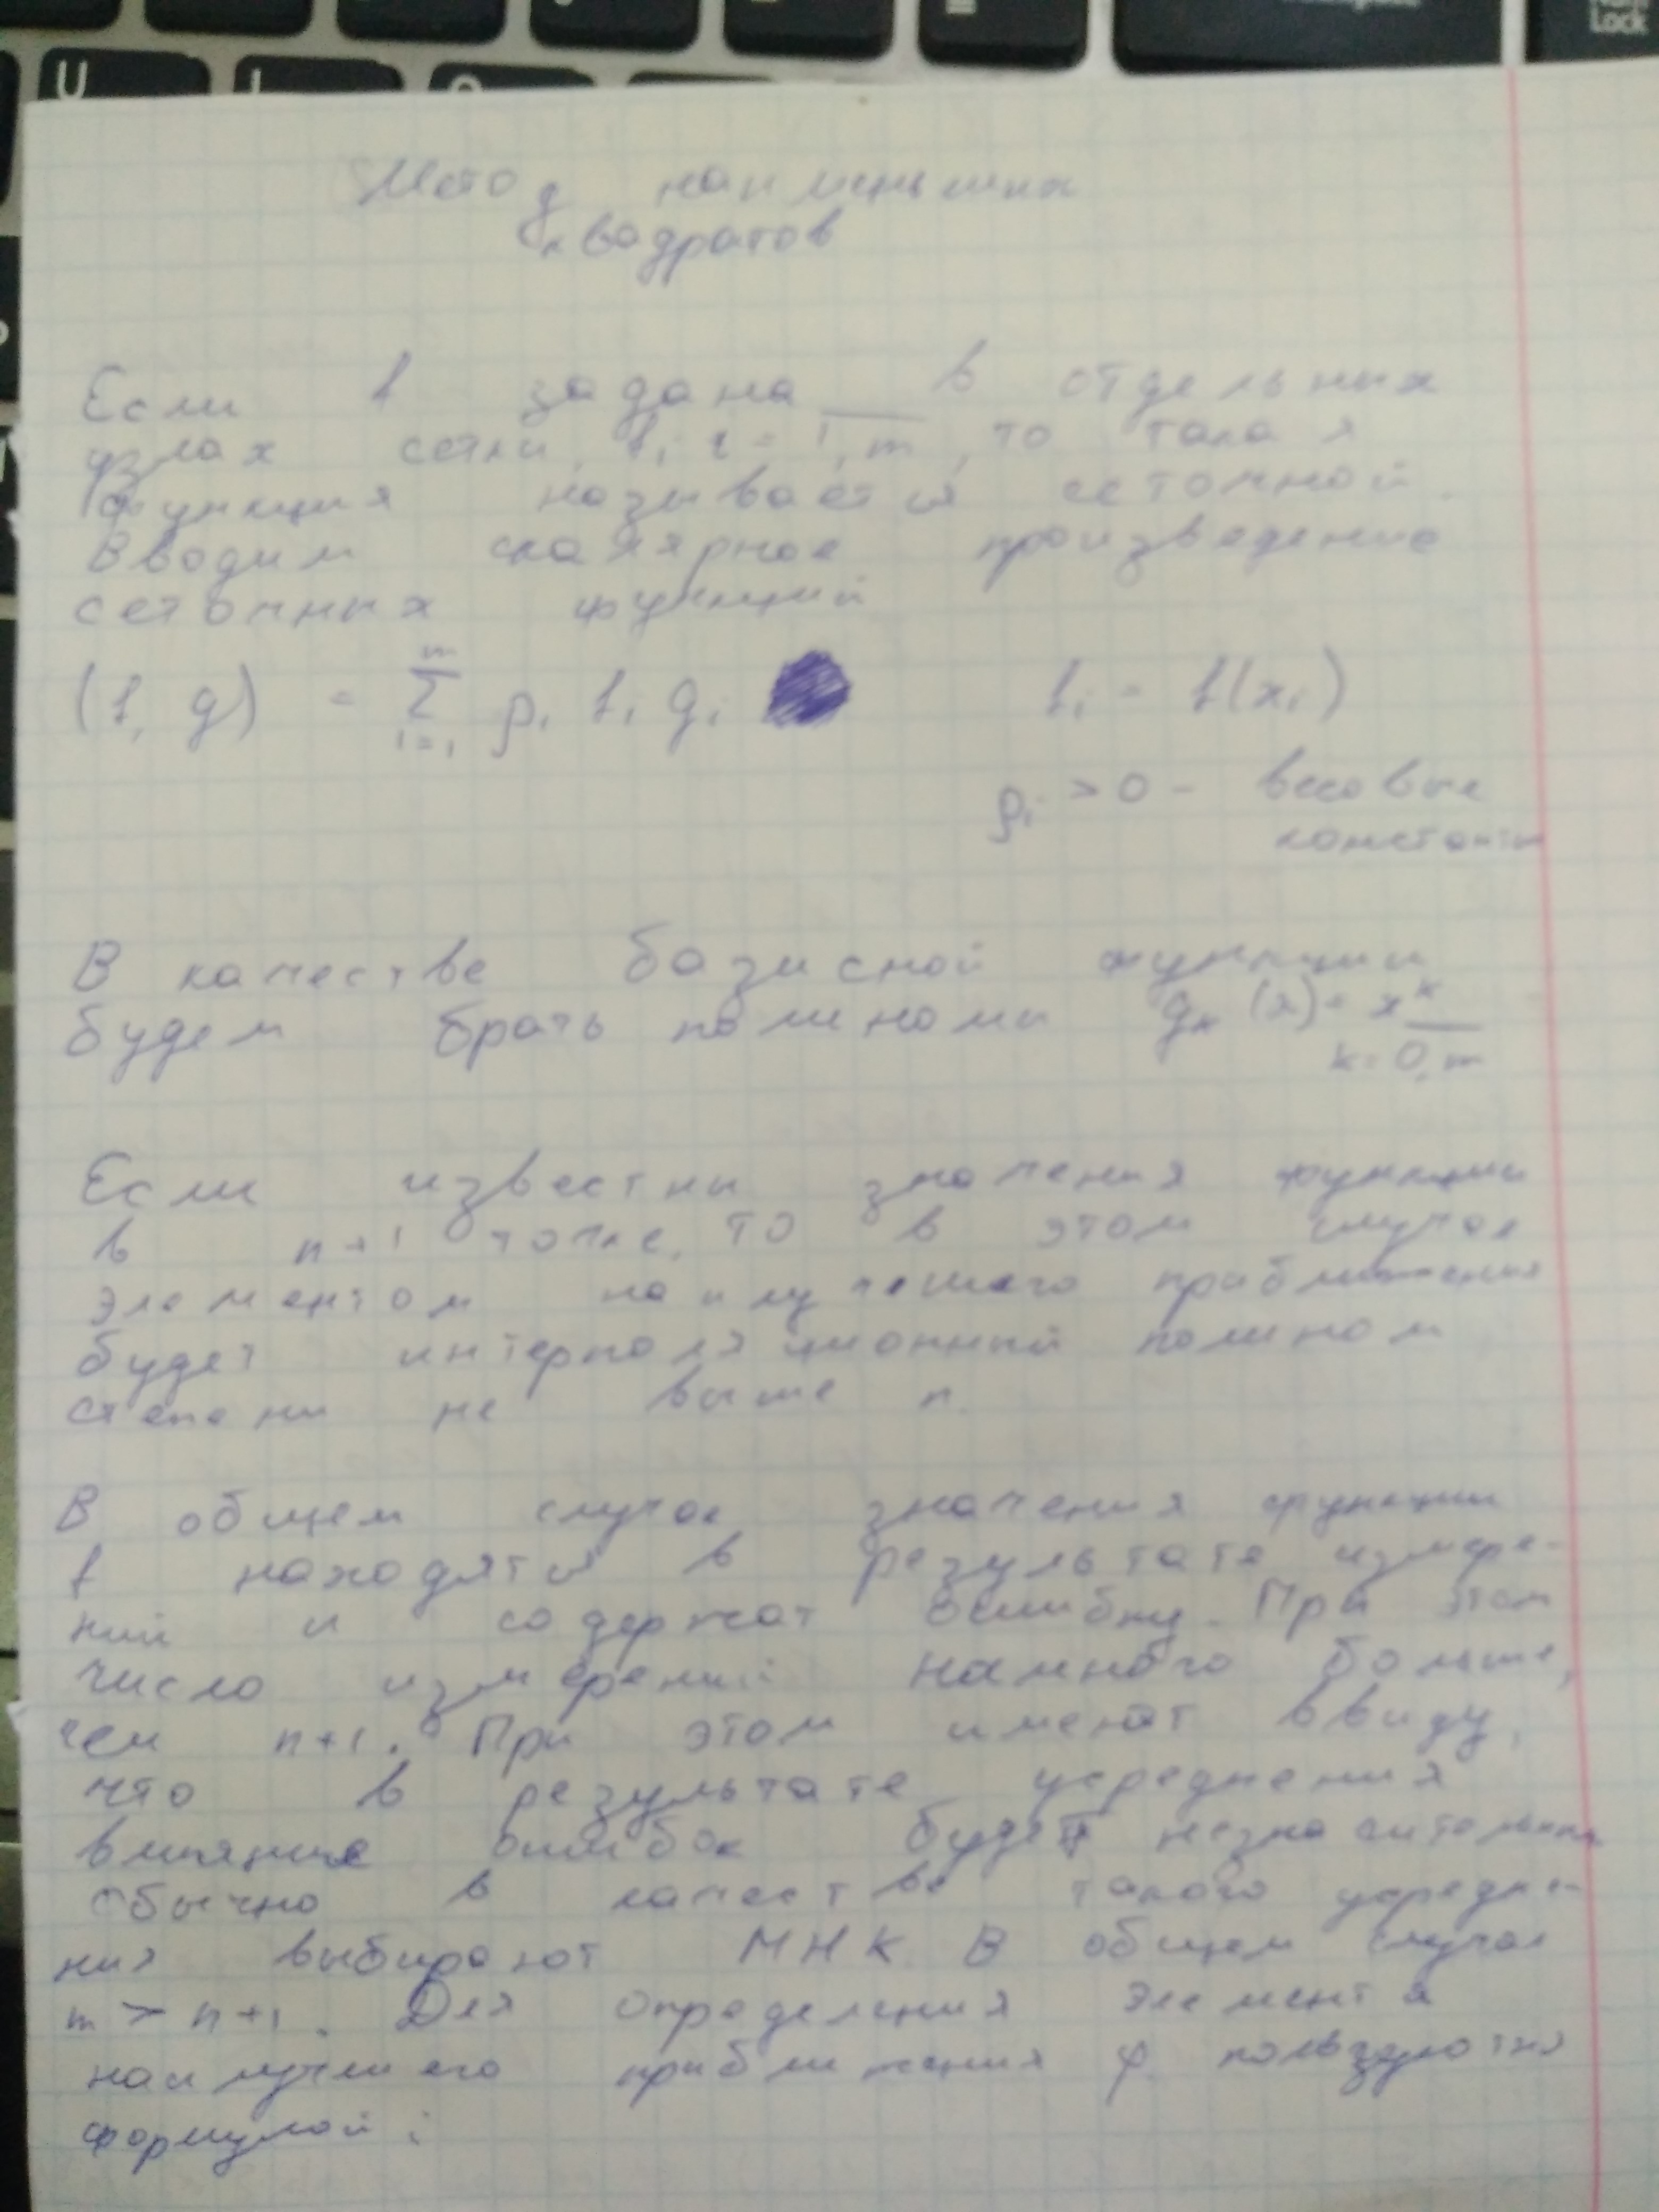 Метод наименьших
квадратов
Если f задана в отдельных
узлах сетки, fᵢ i = 1, m, то такая
функция называется сеточной.
Вводим скалярное произведение
сеточных функций
(f, g) = Σ ρᵢ fᵢ gᵢ fᵢ = f(xᵢ)
m
i=1
ρᵢ > 0 - весовые
константы
В качестве базисной функции
будем брать полиномы gₖ(x) = xᵏ
k = 0, m
Если известны значения функции
в n+1 точке, то в этом случае
элементом наилучшего приближения
будет интерполяционный полином
степени не выше n.
В общем случае значения функции
f находятся в результате измере-
ний и содержат ошибку. При этом
число измерений намного больше,
чем n+1. При этом имеют ввиду,
что в результате усреднения
влияние ошибок будет незначительным
Обычно в качестве такого усредне-
ния выбирают МНК. В общем случае
m > n+1. Для определения элемента
наилучшего приближения φ пользуются
формулой:
U
Lock